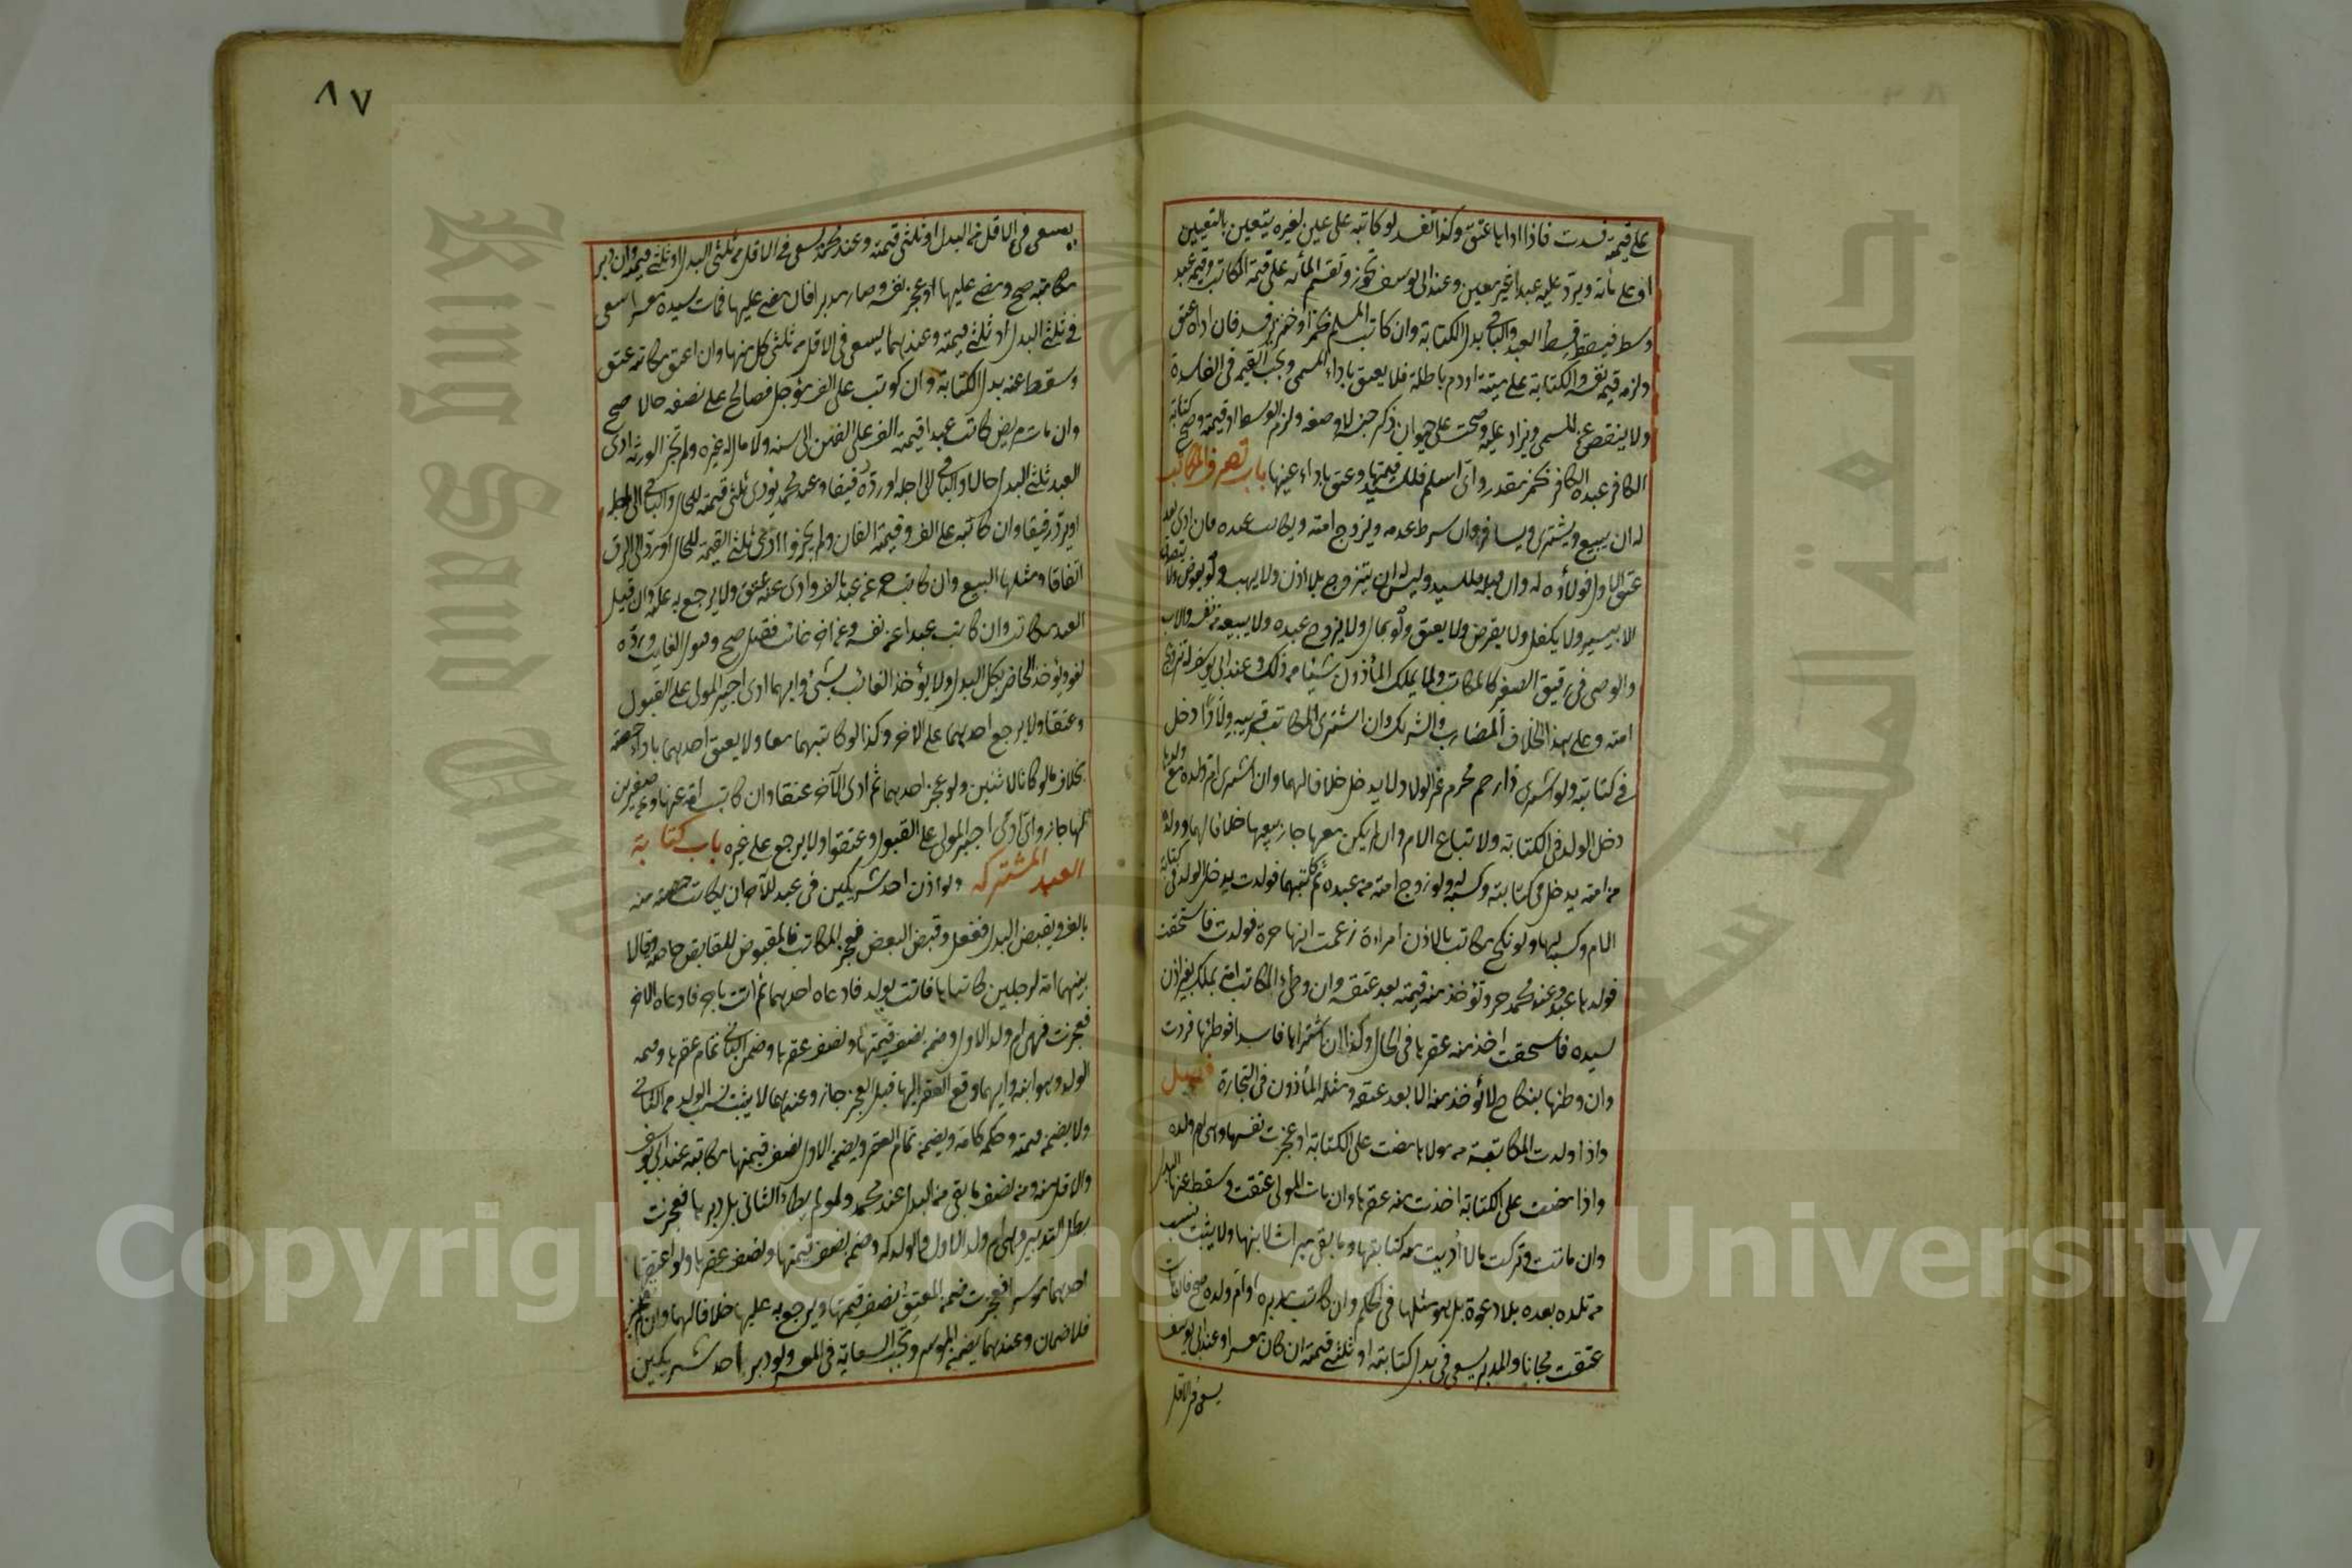 على قيمة فسدت فاذا اداها عتق وكذا تفسد لو كاتبه على عين لغيره يتعين بالتعيين
او على مائة ويرد عليه عبدا غير معين وعند ابى يوسف تجوز وتقسم المأة على قيمة المكاتب وقيمة عبد
وسط فيسقط قسط العبد والباقى بدل الكتابة وان كاتب المسلم بخمر او خنزير فسد فان اداه عتق
ولزمه قيمة نفسه والكتابة على ميتة او دم باطلة فلا يعتق باداء المسمى وتجب القيمة فى الفاسدة
ولا ينقص عن المسمى ويزاد عليه وصحت على حيوان ذكر جنسه لا وصفه ولزم الوسط او قيمته وصح كتابة
الكافر عبده الكافر بخمر مقدر واى اسلم فللسيد قيمتها وعتق باداء عينها باب تصرف المكاتب
له ان يبيع ويشترى ويسافر وان شرط عدمه ويزوج امته ويكاتب عبده فان ادى بعد
عتق الاول فولاؤه له وان قبله فللسيد وليس له ان يتزوج بلا اذن ولا يهب ولو بعوض ولا يتصدق
الا بيسير ولا يكفل ولا يقرض ولا يعتق ولو بمال ولا يزوج عبده ولا يبيعه من نفسه والاب
والوصى فى رقيق الصغير كالمكاتب ولا يملك المأذون شيئا من ذلك وعند ابى يوسف له تزويج
امته وعلى هذا الخلاف المضارب والشريك وان اشترى المكاتب قريبه ولادا دخل
فى كتابته ولو اشترى ذا رحم محرم غير الولاد لا يدخل خلافا لهما وان اشترى ام ولده مع ولدها
دخل الولد فى الكتابة ولا تباع الام وان لم يكن معها جاز بيعها خلافا لهما وولده
من امته يدخل فى كتابته وكسبه له ولو زوج امته من عبده ثم كاتبهما فولدت يدخل الولد فى كتابة
الام وكسبه لها ولو نكح مكاتب بالاذن امراءة زعمت انها حرة فولدت فاستحقت
فولدها عبد وعند محمد حر وتؤخذ منه قيمته بعد عتقه وان وطئ المكاتب امة بملك بغير اذن
سيده فاستحقت اخذ منه عقرها فى الحال وكذا ان اشتراها فاسدا فوطئها فردت
وان وطئها بنكاح لا يؤخذ منه الا بعد عتقه ومثله المأذون فى التجارة فصل
واذا ولدت المكاتبة من مولاها مضت على الكتابة او عجزت نفسها وهى ام ولده
واذا مضت على الكتابة اخذت منه عقرها وان مات المولى عتقت وسقط عنها البدل
وان ماتت وتركت مالا اديت منه كتابتها وما بقى ميراث لابنها ولا يثبت نسب
من تلده بعده بلا دعوة بل هو مثلها فى الحكم وان كاتب مدبره او ام ولده صح فان مات
عتقت مجانا والمدبر يسعى فى بدل كتابته او ثلثى قيمته ان كان معسرا وعند ابى يوسف
يسعى فى الاقل
٨٧
يسعى فى الاقل من البدل او ثلثى قيمته وعند محمد يسعى فى الاقل من ثلثى البدل او ثلثى قيمته وان دبر
مكاتبه صح ومضى عليها او عجز نفسه وصار مدبرا فان مضى عليها فمات سيده معسرا سعى
فى ثلثى البدل او ثلثى قيمته وعندهما يسعى فى الاقل من ثلثى كل منهما وان اعتق مكاتبه عتق
وسقط عنه بدل الكتابة وان كوتب على الف مؤجل فصالح على نصفه حالا صح
وان مات مريض كاتب عبدا قيمته الف على الفين الى سنة ولا مال له غيره ولم تجز الورثة ادى
العبد ثلثى البدل حالا والباقى الى اجله او ردّه رقيقا وعند محمد يؤدى ثلثى قيمته للحال والباقى الى اجله
او يرد رقيقا وان كاتبه على الف وقيمته الفان ولم يجيزوا ادى ثلثى القيمة للحال او يرد الى الرق
اتفاقا ومثلها البيع وان كاتب حر عن عبد بالف وادى عنه عتق ولا يرجع به عليه وان قبل
العبد مكاتب وان كاتب عبدا عن نفسه وعن اخر غائب فقبل صح وقبول الغايب وردّه
لغو ويؤخذ الحاضر بكل البدل ولا يؤخذ الغائب بشئ وايهما ادى اجبر المولى على القبول
وعتقا ولا يرجع احدهما على الاخر وكذا لو كاتبهما معا ولا يعتق احدهما باداء حصته
بخلاف ما لو كانا لاثنين ولو عجز احدهما ثم ادى الاخر عتقا وان كاتب امة عنها وعن صغيرين
لها جاز واى ادى اجبر المولى على القبول وعتقوا ولا يرجع على غيره باب كتابة
العبد المشترك ولو اذن احد شريكين فى عبد للاخر ان يكاتب حصته منه
بالف ويقبض البدل ففعل وقبض البعض فعجز المكاتب فالمقبوض للقابض خاصة وقالا
بينهما امة لرجلين كاتباها فاتت بولد فادعاه احدهما ثم اتت باخر فادعاه الاخر
فعجزت فهى ام ولد الاول وضمن نصف قيمتها ونصف عقرها وضمن الثانى تمام عقرها وقيمة
الولد وهو ابنه وايهما دفع العقر اليها قبل العجز جاز وعندهما لا يثبت نسب الولد من الثانى
ولا يضمن قيمته وحكمه كامه ويضمن تمام العقر ويضمن الاول نصف قيمتها مكاتبة عند ابى يوسف
والاقل منه ومن نصف ما بقى من البدل عند محمد ولو لم يطأ الثانى بل دبرها فعجزت
بطل التدبير وهى ام ولد الاول والولد له وضمن نصف قيمتها ونصف عقرها ولو اعتقها
احدهما موسرا فعجزت ضمن المعتق نصف قيمتها ويرجع به عليها خلافا لهما وان لم تعجز
فلا ضمان وعندهما يضمن الموسر وتجب السعاية فى المعسر ولو دبر احد شريكين
Copyright © King Saud University
King Saud University
جامعة الملك سعود